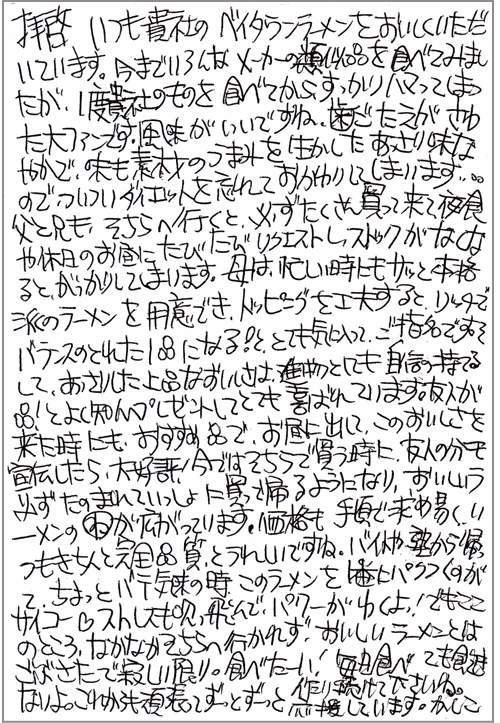 拝啓 いつも貴社の ベイタウンラーメンをおいしくいただ
いています。今までいろんなメーカーの類似品を食べてみまし
たが、1度貴社のものを食べてからすっかりハマってしまっ
た大ファンです。風味がいいですね。歯ごたえがさわ
やかで、味も素材のうまみを生かしたあっさり味な
のでついついダイエットを忘れておかわりしてしまいます…。
父と兄も、そちらへ行くと、必ずたくさん買って来て夜食
や休日のお昼にたびたびリクエストし、ストックがなくな
ると、がっかりしてしまいます。母は、忙しい時にもサッと本格
派のラーメンを用意でき、トッピングを工夫すると、リッチで
バランスのとれた1品になる!と、とても気に入って、ご指名です
して、あっさりした上品なおいしさは、進物としても自信の持てる
品!とよく知人へプレゼントしてとても喜ばれています。友人が
来た時にも、おすすめ品で、お昼に出して、このおいしさを
宣伝したら、大好評!今ではそちらで買う時に、友人の分も
必ずたのまれていっしょに買って帰るようになり、おいしいラ
ーメンの輪が広がっています。価格も手頃で求め易く、い
つもきちんと完全品質、とうれしいですね。バイトや塾から帰っ
て、ちょっとバテ気味の時、このラーメンを1番にパクつくのが
サイコー♡ストレスも吹っ飛んで、パワーがわくよ!でもここ
のところ、なかなかそちらへ行かれず、おいしいラーメンとは
ごぶさたで寂しい限り。食べたーい!毎日食べても食べ
なりよ。これからも頑張って、ずっとずっと作り続けて下さいね。
応援しています。かしこ